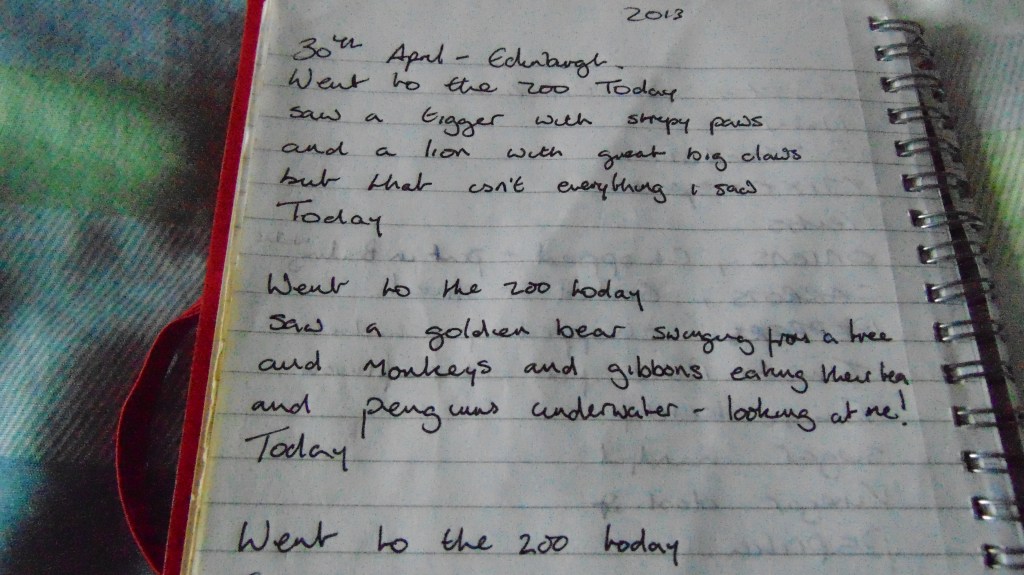 2013
30th April - Edinburgh.
Went to the zoo Today
saw a tigger with stripy paws
and a lion with great big claws
but that isn't everything i saw
Today
Went to the zoo today
saw a golden bear swinging from a tree
and Monkeys and gibbons eating their tea
and penguins underwater - looking at me!
Today
Went to the zoo today